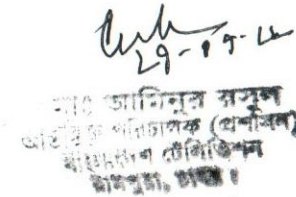 29-
মোঃ আমিনুর রসুল
অতিরিক্ত পরিচালক (প্রশাসন)
বাংলাদেশ টেলিভিশন
রামপুরা, ঢাকা।